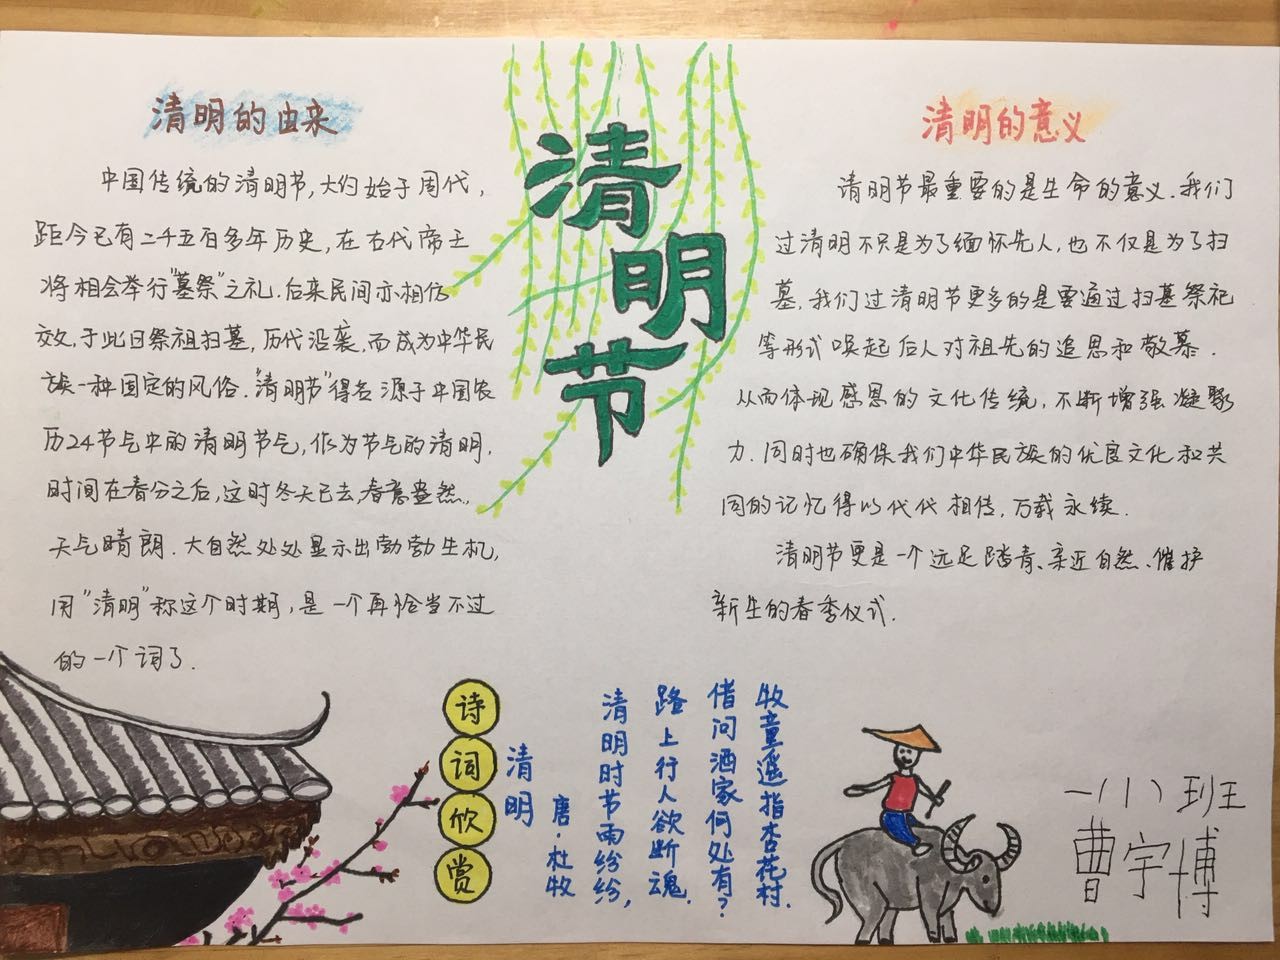 清明的由来
中国传统的清明节,大约始于周代,
距今已有二千五百多年历史,在古代帝王
将相会举行"墓祭"之礼.后来民间亦相仿
效,于此日祭祖扫墓,历代沿袭,而成为中华民
族一种固定的风俗."清明节"得名源于中国农
历24节气中的清明节气,作为节气的清明,
时间在春分之后,这时冬天已去,春意盎然,
天气晴朗.大自然处处显示出勃勃生机,
用"清明"称这个时期,是一个再恰当不过
的一个词了.
清明节
清明的意义
清明节最重要的是生命的意义.我们
过清明不只是为了缅怀先人,也不仅是为了扫
墓,我们过清明节更多的是要通过扫墓祭祀
等形式唤起后人对祖先的追思和敬慕.
从而体现感恩的文化传统,不断增强凝聚
力.同时也确保我们中华民族的优良文化和共
同的记忆得以代代相传,万载永续.
清明节更是一个远足踏青、亲近自然、催护
新生的春季仪式.
诗词欣赏
清明
唐·杜牧
清明时节雨纷纷,
路上行人欲断魂.
借问酒家何处有?
牧童遥指杏花村.
一(1)班王
曹宇博